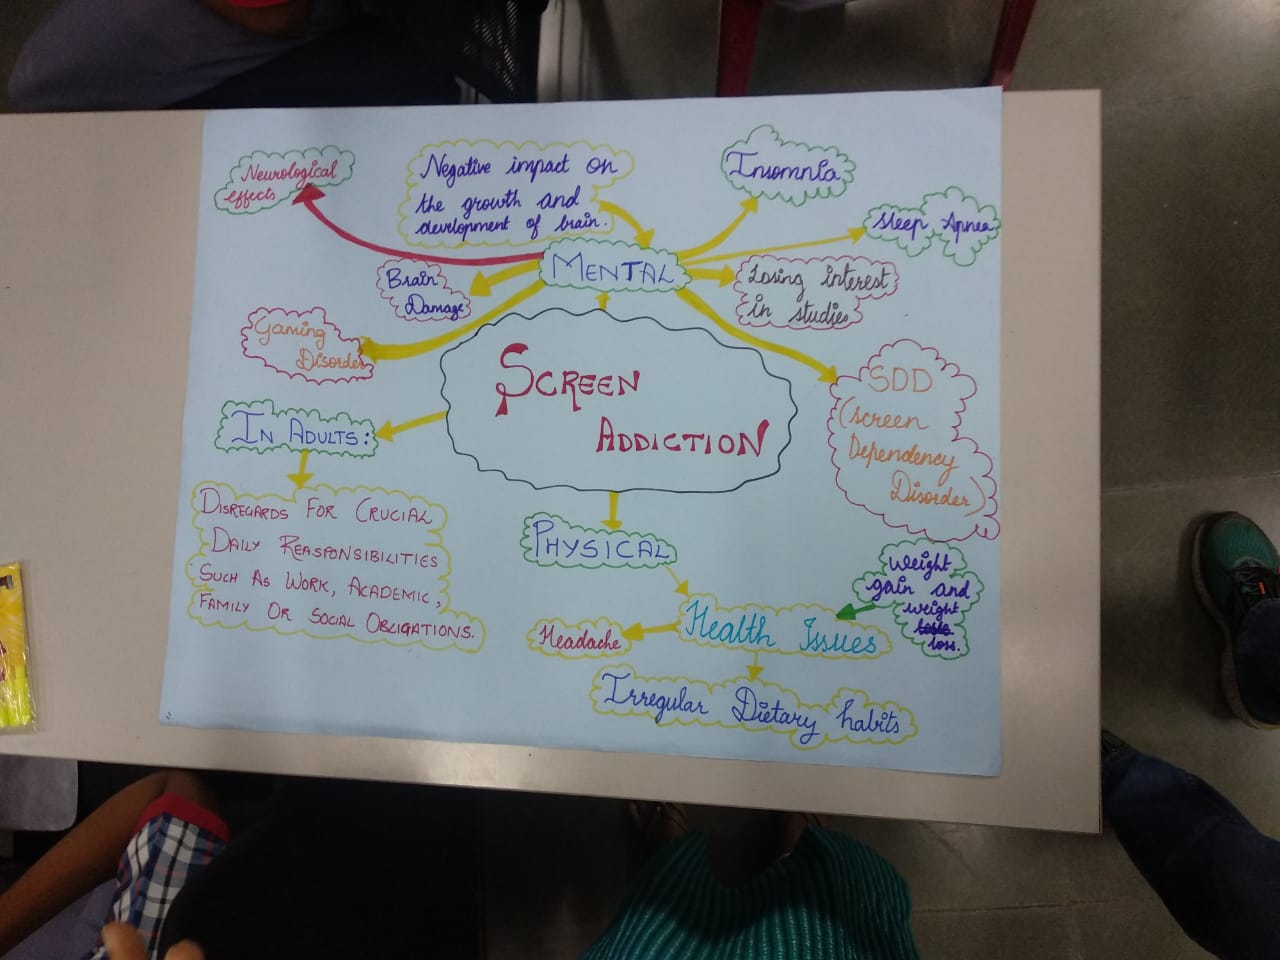 Neurological
effects
Negative impact on
the growth and
development of brain.
Insomnia
Sleep Apnea
MENTAL
Brain
Damage
Losing interest
in studies
Gaming
Disorder
SDD
(Screen
Dependency
Disorder)
SCREEN
ADDICTION
IN ADULTS:
DISREGARDS FOR CRUCIAL
DAILY REASPONSIBILITIES
SUCH AS WORK, ACADEMIC,
FAMILY OR SOCIAL OBLIGATIONS.
PHYSICAL
Weight
gain and
weight
loss.
Health Issues
Headache
Irregular Dietary habits